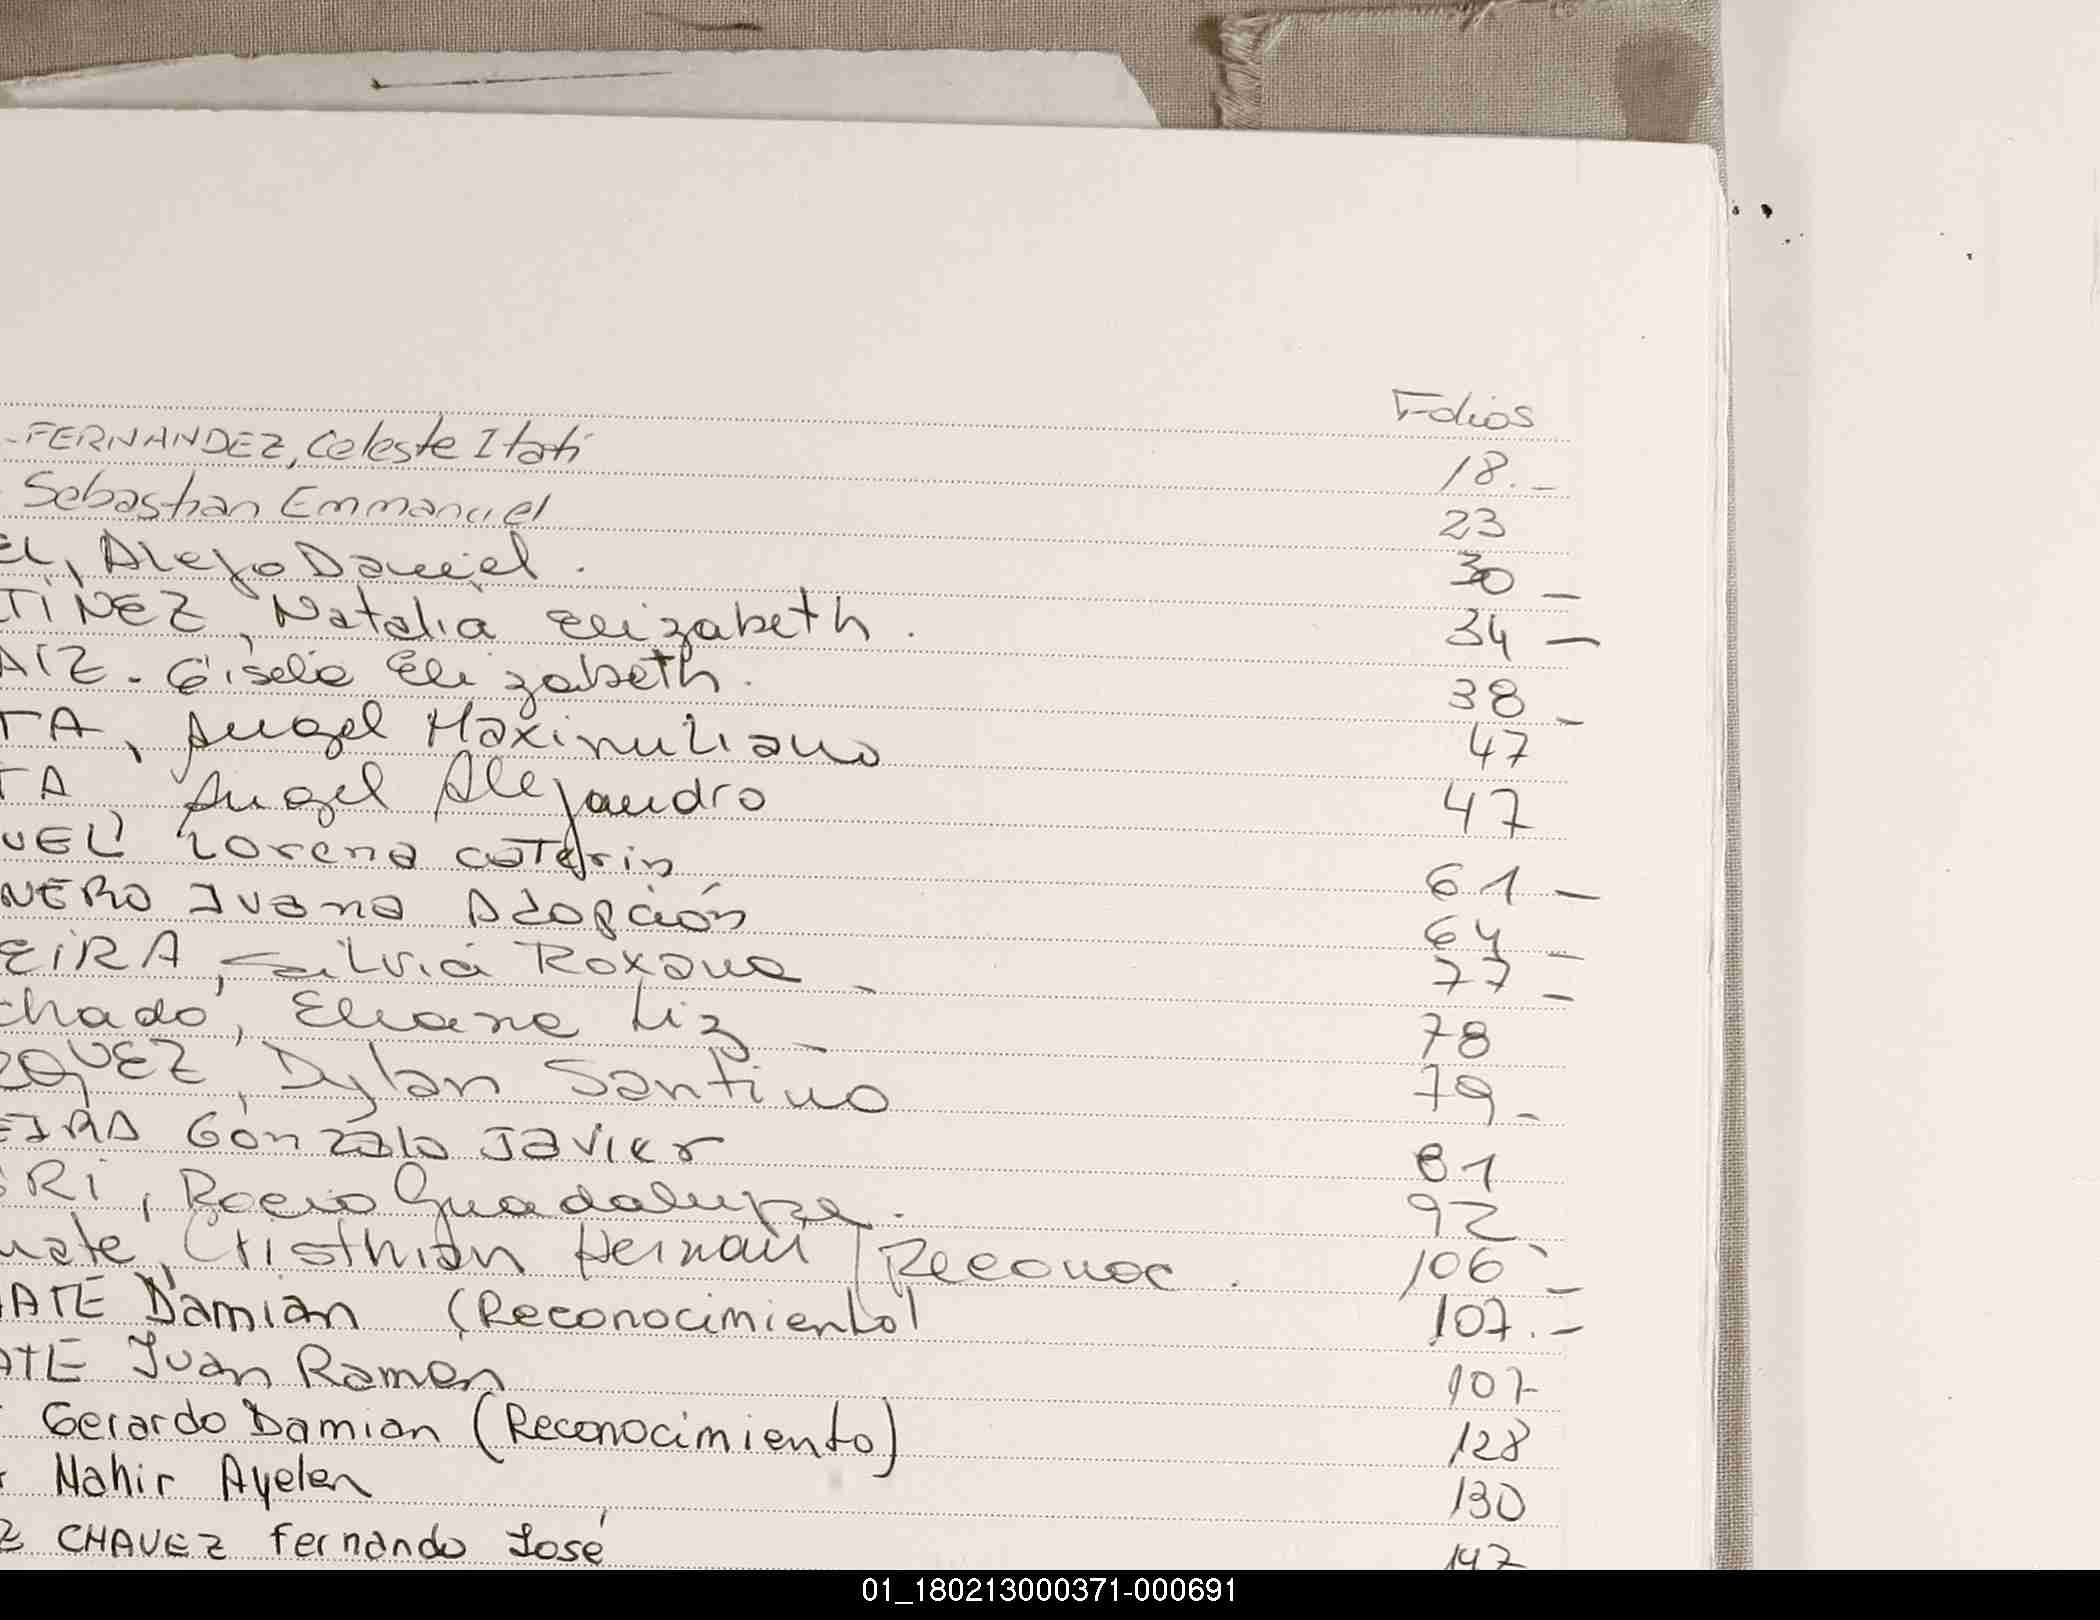 Folios
-FERNANDEZ, Celeste Itati 18.-
Sebastian Emmanuel 23
EL, Alejo Daniel. 30 -
TINEZ, Natalia Elizabeth. 34 -
AIZ. Gisela Elizabeth. 38 -
TA, Angel Maximiliano 47
TA, Angel Alejandro 47
UEL Lorena Caterin 61 -
NERO Ivana Adopción 64 -
EIRA, Silvia Roxana - 77 -
chado, Eliana Liz - 78
ZQUEZ, Dylan Santino 79 -
EIRA Gonzalo Javier 81
RI, Rocio Guadalupe. 92 -
uate, Cristhian Hernan / Reconoc. 106 -
ATE Damian (Reconocimiento) 107.-
ATE Juan Ramon 107
Gerardo Damian (Reconocimiento) 128
Nahir Ayelen 130
Z CHAVEZ Fernando José 147
01_180213000371-000691